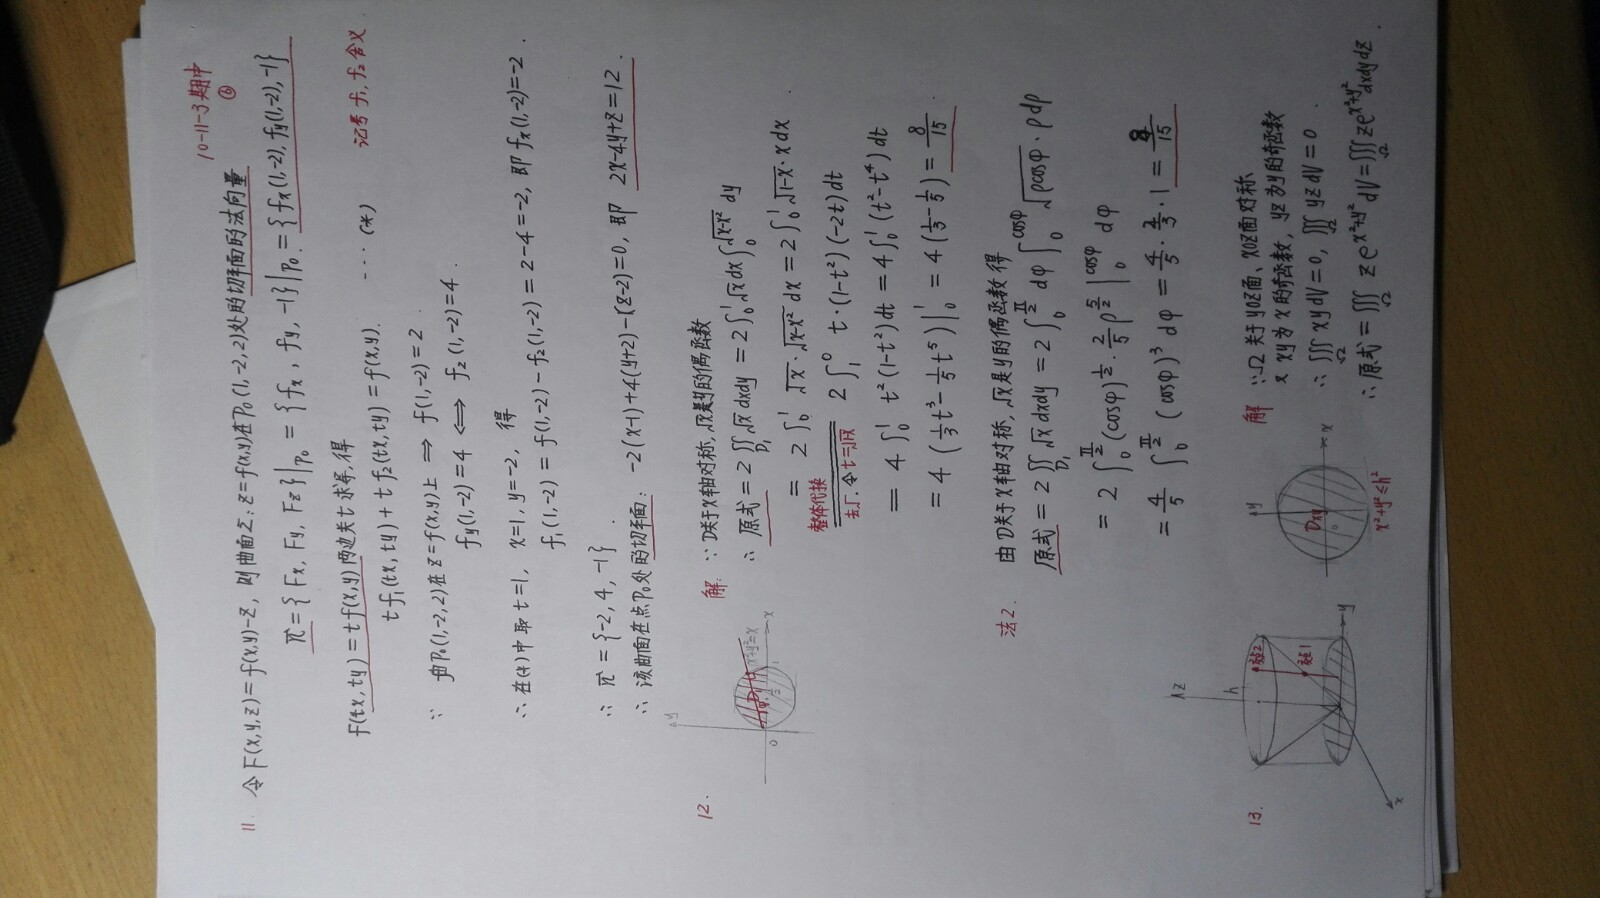 10-11-3期中
⑥
11. 令F(x,y,z)=f(x,y)-z, 则曲面Σ:z=f(x,y)在P₀(1,-2,2)处的切平面的法向量
n⃗={Fx, Fy, Fz}|P₀={fx, fy, -1}|P₀={fx(1,-2), fy(1,-2), -1}
f(tx,ty)=tf(x,y)两边关于t求导,得
tf₁(tx,ty)+tf₂(tx,ty)=f(x,y). ---- (*) 记号f₁,f₂含义
∵ 由P₀(1,-2,2)在z=f(x,y)上 ⇒ f(1,-2)=2.
fy(1,-2)=4 ⟺ f₂(1,-2)=4.
∴ 在(*)中取t=1, x=1, y=-2, 得
f₁(1,-2)=f(1,-2)-f₂(1,-2)=2-4=-2, 即fx(1,-2)=-2
∴ n⃗={-2,4,-1}.
∴ 该曲面在点P₀处的切平面: -2(x-1)+4(y+2)-(z-2)=0, 即 2x-4y+z=12.
12. 解: ∵ D关于x轴对称, √x是y的偶函数
∴ 原式=2∬D₁ √x dxdy=2∫₀¹√x dx∫₀^√(x-x²) dy
=2∫₀¹√x·√(x-x²) dx=2∫₀¹√(1-x)·x dx
整体代换
去√.令t=√(1-x) 2∫₁⁰ t·(1-t²)(-2t)dt
=4∫₀¹t²(1-t²)dt=4∫₀¹(t²-t⁴)dt
=4(1/3 t³-1/5 t⁵)|₀¹=4(1/3-1/5)=8/15.
y
D₁
x²+y²=x
x
0
法2. 由D关于x轴对称, √x是y的偶函数得
原式=2∬D₁ √x dxdy=2∫₀^(π/2) dφ∫₀^cosφ √(ρcosφ)·ρdρ
=2∫₀^(π/2)(cosφ)^(1/2)·2/5 ρ^(5/2)|₀^cosφ dφ
=4/5∫₀^(π/2)(cosφ)³dφ=4/5·2/3·1=8/15
13. 解 ∵ Ω关于yoz面、xoz面对称
又xy为x的奇函数, yz为y的奇函数
∴ ∭Ω xydV=0, ∭Ω yzdV=0.
∴ 原式=∭Ω ze^(x²+y²)dV=∭Ω ze^(x²+y²)dxdydz
z
h
y
x
y
Dxy
0
x
x²+y²≤h²